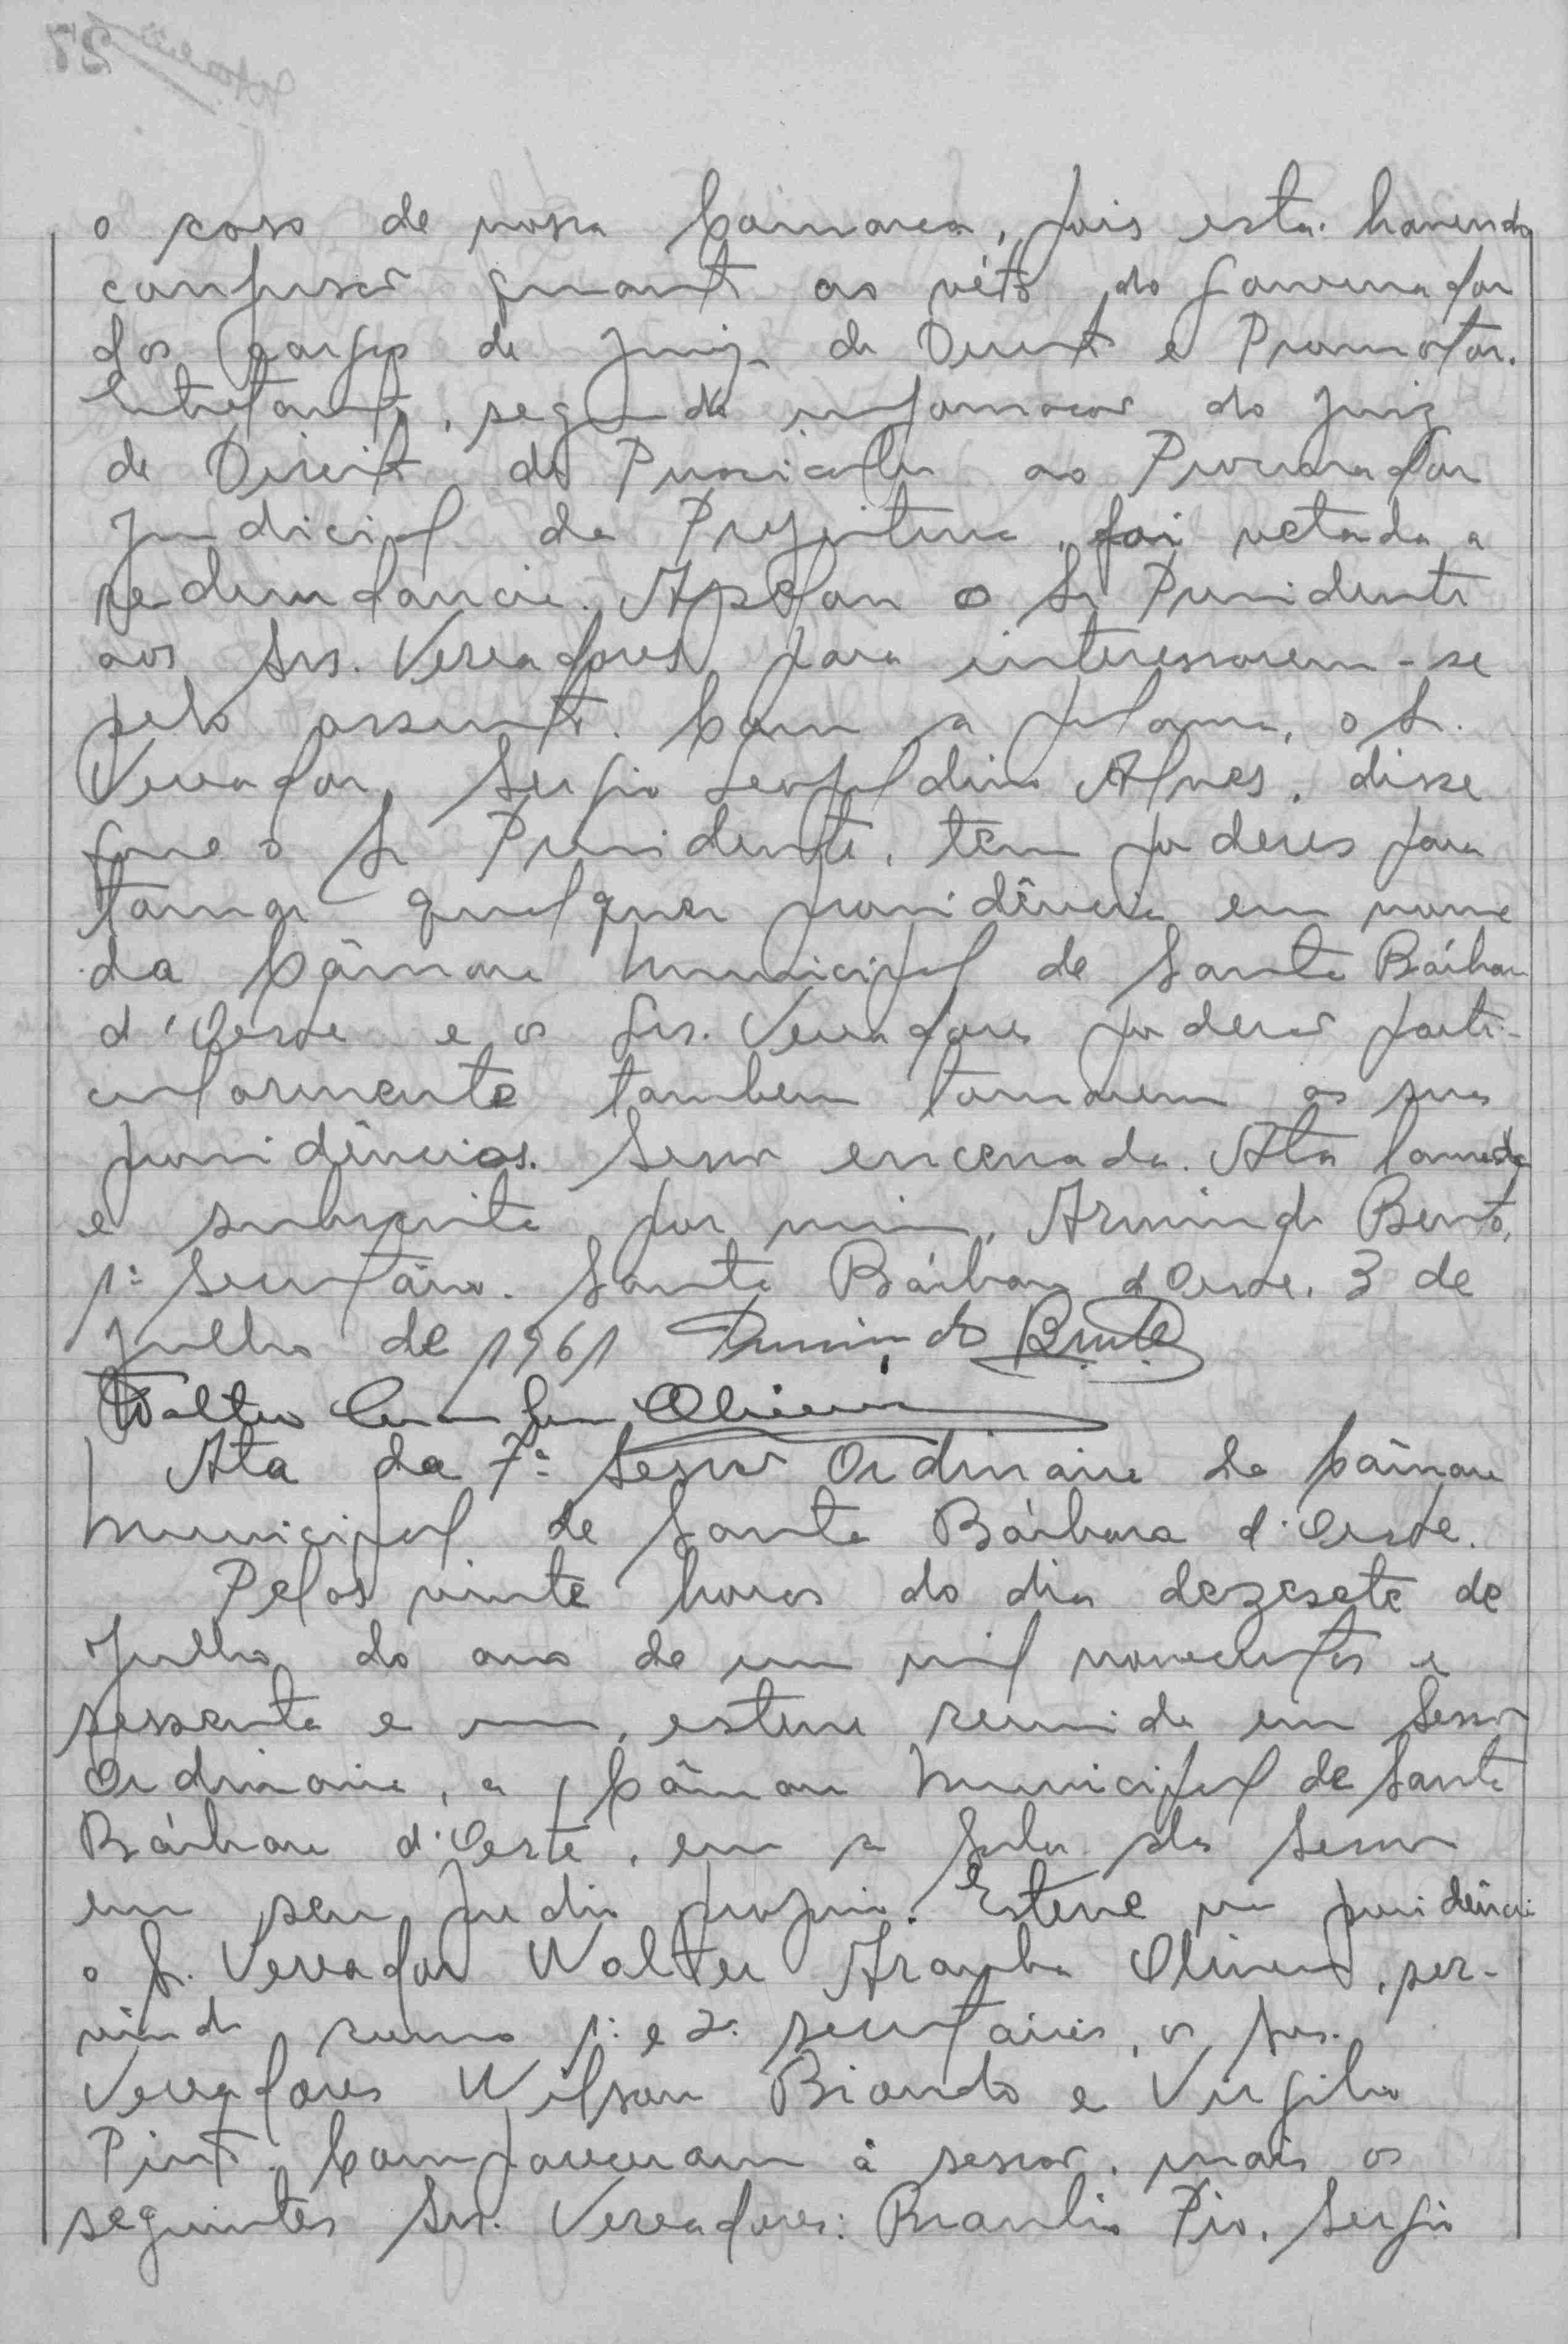 o caso de nossa Comarca, pois está havendo
confusão quanto ao véto do Governador
dos cargos de Juiz de Direito e Promotor.
Entretanto, segundo informação do Juiz
de Direito de Piracicaba ao Procurador
Judicial da Prefeitura, foi vetada a
redundância. Apelou o Sr Presidente
aos Srs. Vereadores para interessarem-se
pelo assunto. Com a palavra, o Sr.
Vereador, Sergio Leopoldino Alves, disse
que o Sr Presidente, tem poderes para
tomar qualquer providência em nome
da Câmara Municipal de Santa Bárbara
d'Oeste e os Srs. Vereadores poderão parti-
cularmente tambem tomarem as suas
providências. Sessão encerrada. Ata lavrada
e subscrita por mim, Armindo Bento,
1º Secretário. Santa Bárbara d'Oeste, 3 de
Julho de 1961 Armindo Bento
Walter Oliveira
Ata da 7ª Sessão Ordinária da Câmara
Municipal de Santa Bárbara d'Oeste.
Pelas vinte horas do dia dezesete de
Julho do ano de um mil novecentos e
sessenta e um, esteve reunida em Sessão
Ordinária, a Câmara Municipal de Santa
Bárbara d'Oeste, em a Sala da Sessão
em seu predio proprio. Esteve na presidência
o Sr. Vereador Walter Aranha Oliveira, ser-
vindo como 1º e 2º secretários, os Srs.
Vereadores Wilson Biondo e Virgilio
Pinto. Compareceram à sessão, mais os
seguintes Srs. Vereadores: Braulio Pio, Sergio